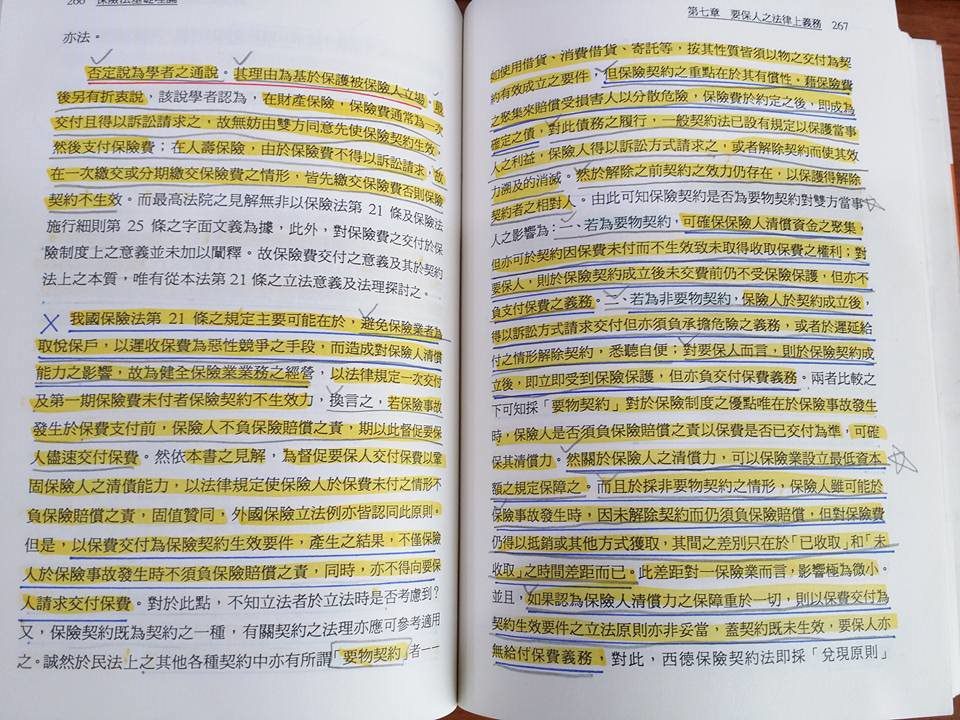 266 保險法基礎理論
亦法。
否定說為學者之通說。其理由為基於保護被保險人立場。最
後另有折衷說，該說學者認為，在財產保險，保險費通常為一次
交付且得以訴訟請求之，故無妨由雙方同意先使保險契約生效，
然後支付保險費；在人壽保險，由於保險費不得以訴訟請求，故
在一次繳交或分期繳交保險費之情形，皆先繳交保險費否則保險
契約不生效。而最高法院之見解無非以保險法第 21 條及保險法
施行細則第 25 條之字面文義為據，此外，對保險費之交付於保
險制度上之意義並未加以闡釋。故保險費交付之意義及其於契約
法上之本質，唯有從本法第 21 條之立法意義及法理探討之。
我國保險法第 21 條之規定主要可能在於，避免保險業者為
取悅保戶，以遲收保費為惡性競爭之手段，而造成對保險人清償
能力之影響，故為健全保險業業務之經營，以法律規定一次交付
及第一期保險費未付者保險契約不生效力，換言之，若保險事故
發生於保費支付前，保險人不負保險賠償之責，期以此督促要保
人儘速交付保費。然依本書之見解，為督促要保人交付保費以鞏
固保險人之清償能力，以法律規定使保險人於保費未付之情形不
負保險賠償之責，固值贊同，外國保險立法例亦皆認同此原則。
但是，以保費交付為保險契約生效要件，產生之結果，不僅保險
人於保險事故發生時不須負保險賠償之責，同時，亦不得向要保
人請求交付保費。對於此點，不知立法者於立法時是否考慮到？
又，保險契約既為契約之一種，有關契約之法理亦應可參考適用
之。誠然於民法上之其他各種契約中亦有所謂「要物契約」者——
第七章 要保人之法律上義務 267
如使用借貸、消費借貸、寄託等，按其性質皆須以物之交付為契
約有效成立之要件，但保險契約之重點在於其有償性。藉保險費
之聚集來賠償受損害人以分散危險，保險費於約定之後，即成為
確定之債，對此債務之履行，一般契約法已設有規定以保護當事
人之利益，保險人得以訴訟方式請求之，或者解除契約而使其效
力溯及的消滅。然於解除之前契約之效力仍存在，以保護得解除
契約者之相對人。由此可知保險契約是否為要物契約對雙方當事
人之影響為：一、若為要物契約，可確保保險人清償資金之聚集，
但亦可於契約因保費未付而不生效致未取得收取保費之權利；對
要保人，則於保險契約成立後未交費前仍不受保險保護，但亦不
負支付保費之義務。二、若為非要物契約，保險人於契約成立後，
得以訴訟方式請求交付但亦須負承擔危險之義務，或者於遲延給
付之情形解除契約，悉聽自便；對要保人而言，則於保險契約成
立後，即立即受到保險保護，但亦負交付保費義務。兩者比較之
下可知採「要物契約」對於保險制度之優點唯在於保險事故發生
時，保險人是否須負保險賠償之責以保費是否已交付為準，可確
保其清償力。然關於保險人之清償力，可以保險業設立最低資本
額之規定保障之。而且於採非要物契約之情形，保險人雖可能於
保險事故發生時，因未解除契約而仍須負保險賠償，但對保險費
仍得以抵銷或其他方式獲取，其間之差別只在於「已收取」和「未
收取」之時間差距而已。此差距對一保險業而言，影響極為微小。
並且，如果認為保險人清償力之保障重於一切，則以保費交付為
契約生效要件之立法原則亦非妥當，蓋契約既未生效，要保人亦
無給付保費義務，對此，西德保險契約法即採「兌現原則」